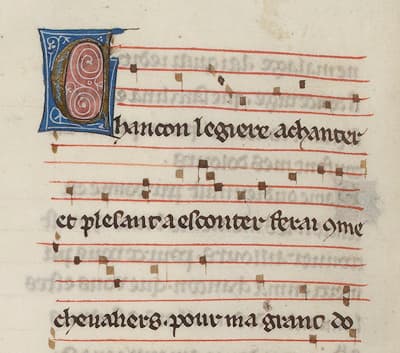 Chancon legiere a chanter
et plesant a escouter ferai 9me
chevaliers. pour ma grant do